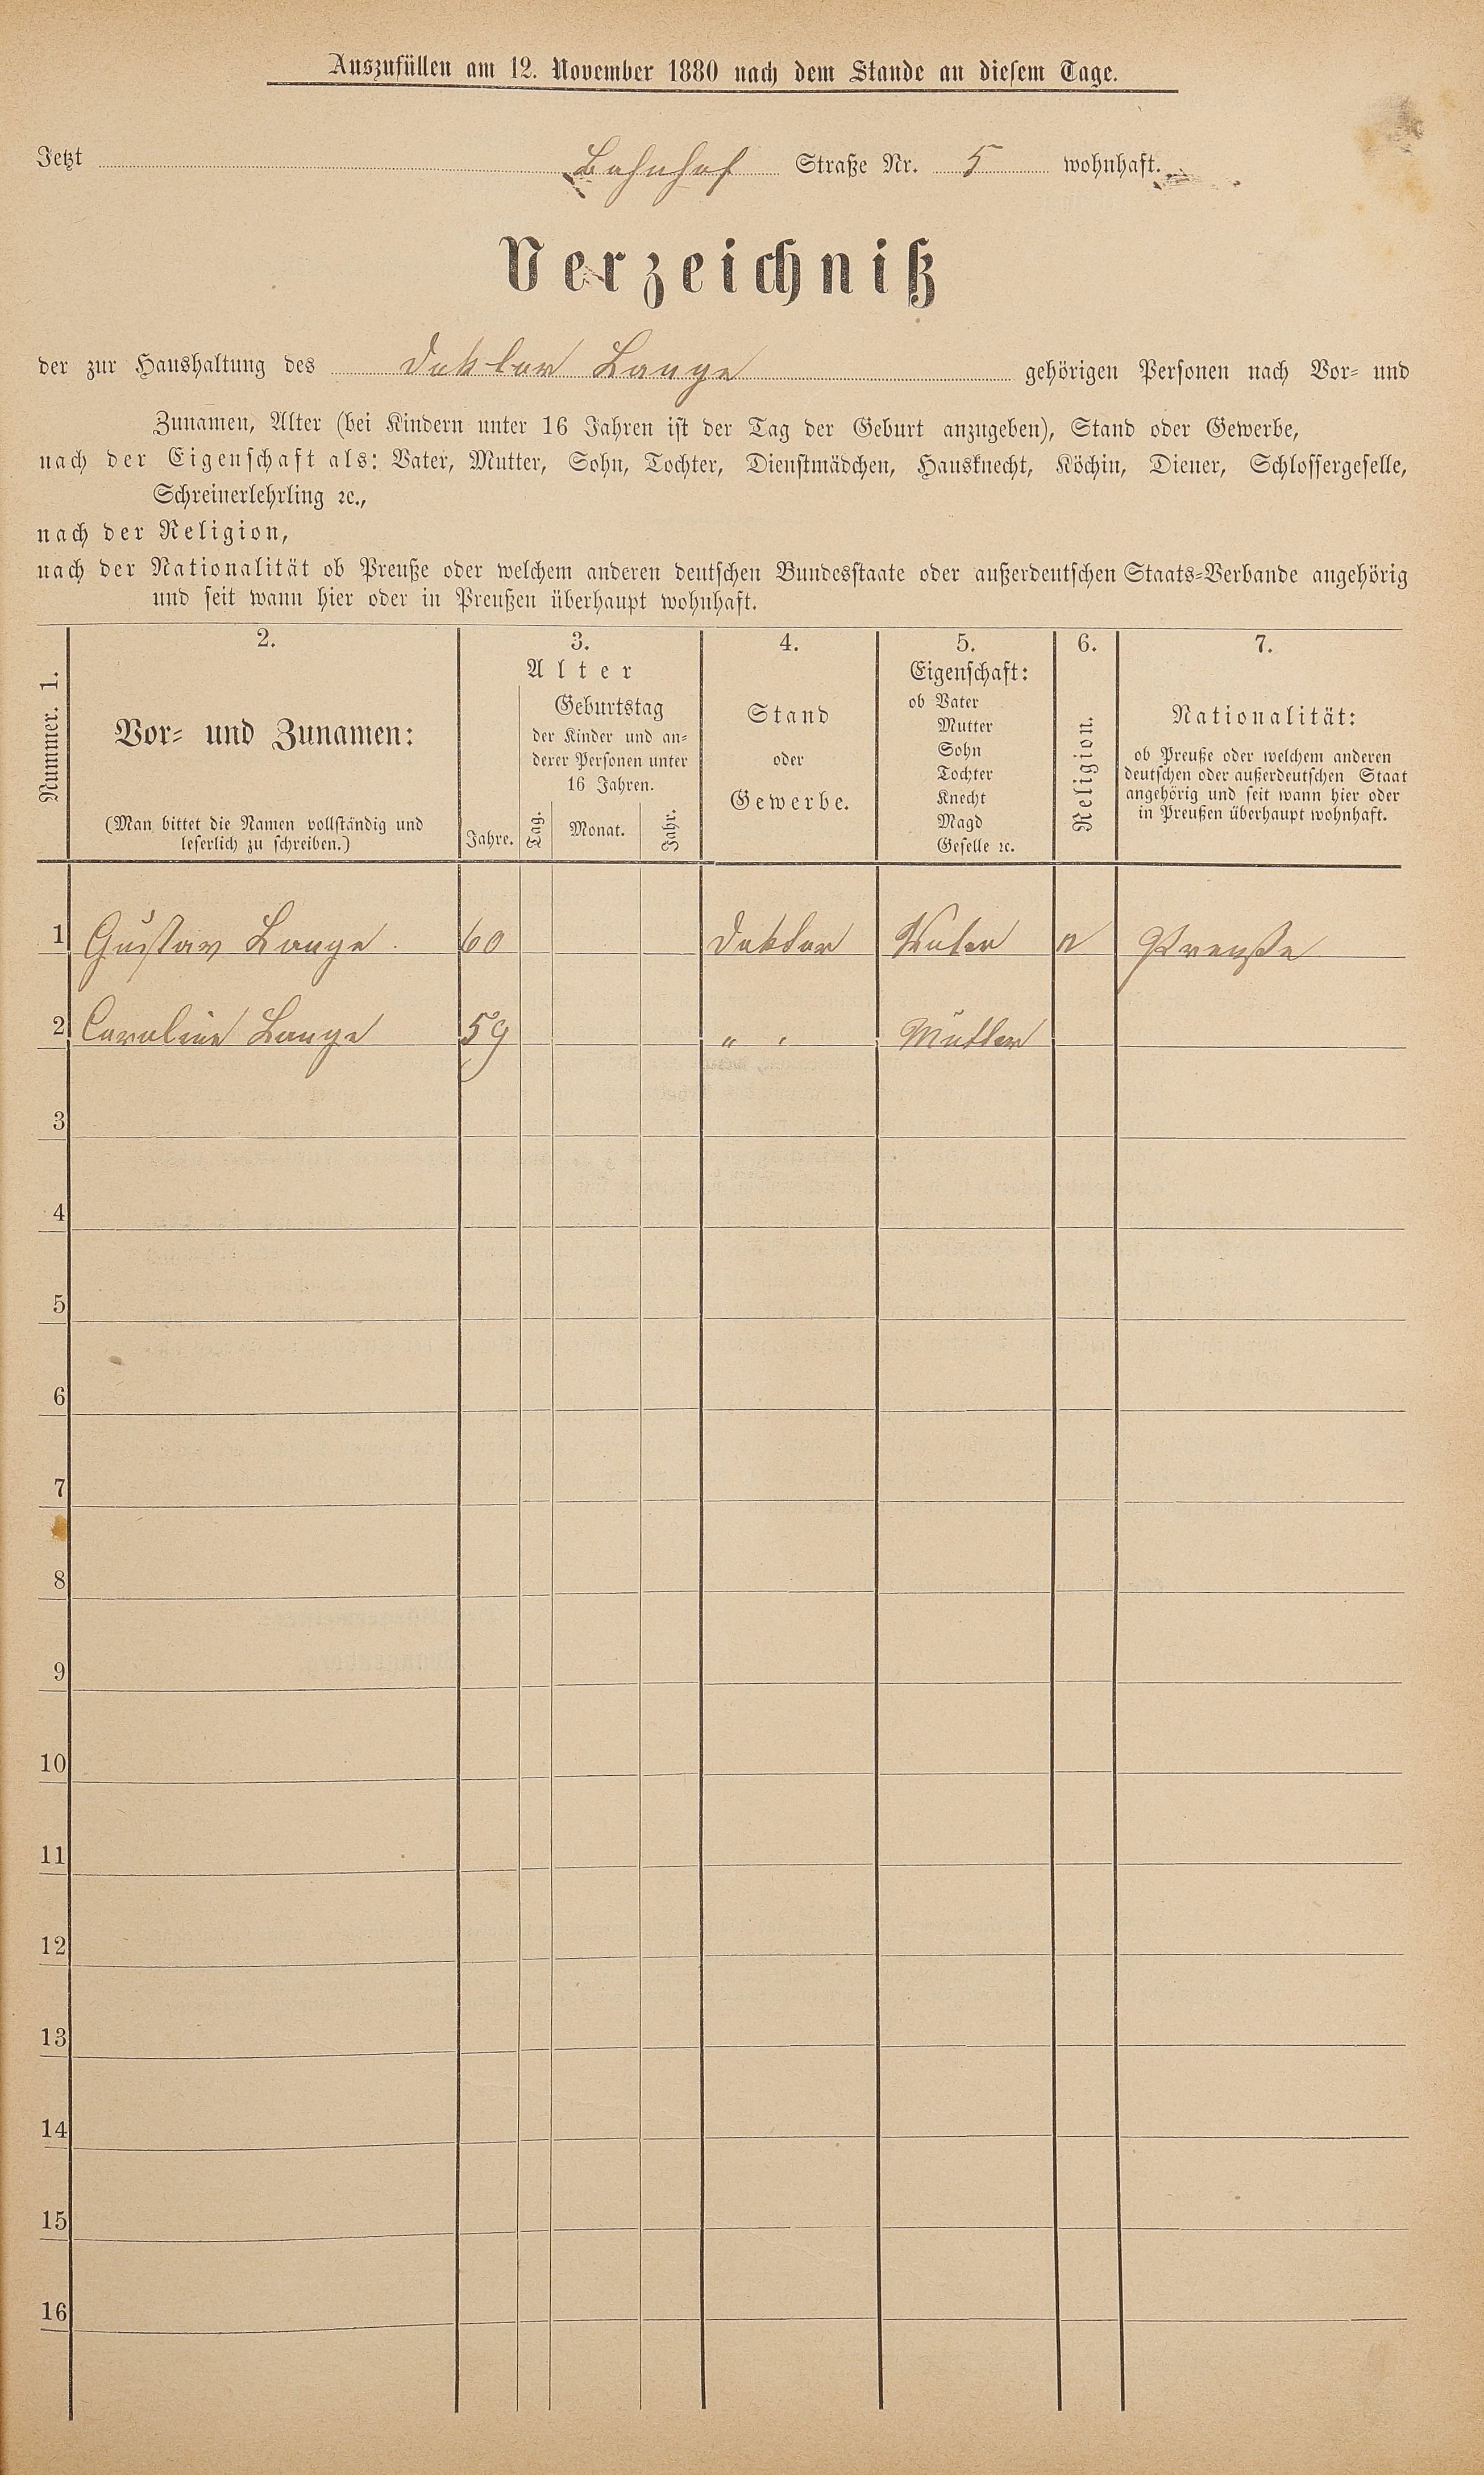 Auszufüllen am 12. November 1880 nach dem Stande an diesem Tage.
Jetzt Bahnhof Straße Nr. 5 wohnhaft.
Verzeichniß
der zur Haushaltung des Doktor Lange gehörigen Personen nach Vor- und
Zunamen, Alter (bei Kindern unter 16 Jahren ist der Tag der Geburt anzugeben), Stand oder Gewerbe,
nach der Eigenschaft als: Vater, Mutter, Sohn, Tochter, Dienstmädchen, Hausknecht, Köchin, Diener, Schlossergeselle,
Schreinerlehrling ꝛc.,
nach der Religion,
nach der Nationalität ob Preuße oder welchem anderen deutschen Bundesstaate oder außerdeutschen Staats-Verbande angehörig
und seit wann hier oder in Preußen überhaupt wohnhaft.
Nummer. 1.
2.
Vor- und Zunamen:
(Man bittet die Namen vollständig und
leserlich zu schreiben.)
3.
Alter
Jahre.
Geburtstag
der Kinder und an-
derer Personen unter
16 Jahren.
Tag. Monat. Jahr.
4.
Stand
oder
Gewerbe.
5.
Eigenschaft:
ob Vater
Mutter
Sohn
Tochter
Knecht
Magd
Geselle ꝛc.
6.
Religion.
7.
Nationalität:
ob Preuße oder welchem anderen
deutschen oder außerdeutschen Staat
angehörig und seit wann hier oder
in Preußen überhaupt wohnhaft.
1 Gustav Lange. 60 Doktor Vater Preuße
2 Caroline Lange 59 " " Mutter
3
4
5
6
7
8
9
10
11
12
13
14
15
16